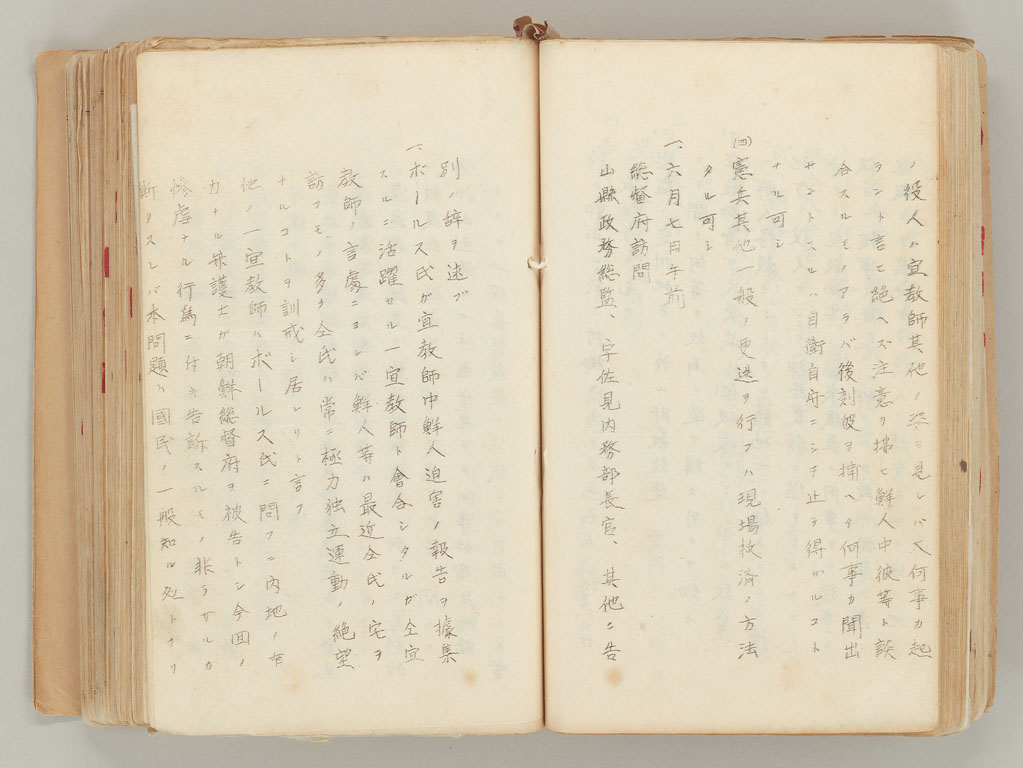 ノ役人ハ宣教師其他ノ姿ヲ見レバ又何事カ起
ラント言セ絶ヘズ注意ヲ拂セ鮮人中彼等ト談
合スルモノアラバ後刻彼ヲ捕ヘテ何事カ聞出
サントスルハ自衛自守ニシテ止ヲ得ザルコト
ナル可シ
(四)憲兵其他一般ノ更迭ヲ行フハ現場救済ノ方法
タル可シ
一、六月七日午前
總督府訪問
山縣政務総監、宇佐見内務部長官、其他ニ告
別ノ辞ヲ述ブ
一、ボールス氏ガ宣教師中鮮人迫害ノ報告ヲ據集
スルニ活躍セル一宣教師ト會合シタルガ仝宣
教師ノ言處ニヨレバ鮮人等ハ最近仝氏ノ宅ヲ
訪フモノ多ク仝氏ハ常ニ極力独立運動ノ絶望
ナルコトヲ訓戒シ居レリト言フ
他ノ一宣教師ハボールス氏ニ問フニ内地ノ有
力ナル弁護士ガ朝鮮總督府ヲ被告トシ今回ノ
惨虐ナル行為ニ付キ告訴スルモノ非ラザルカ
斯クスレバ本問題ハ國民ノ一般知ル処トナリ